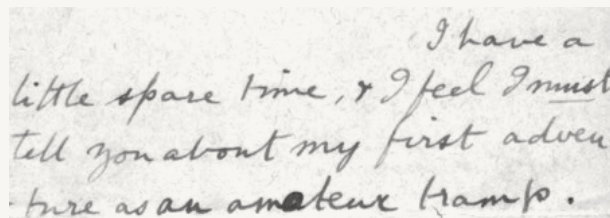 I have a
little spare time, & I feel I must
tell you about my first adven
ture as an amateur tramp.